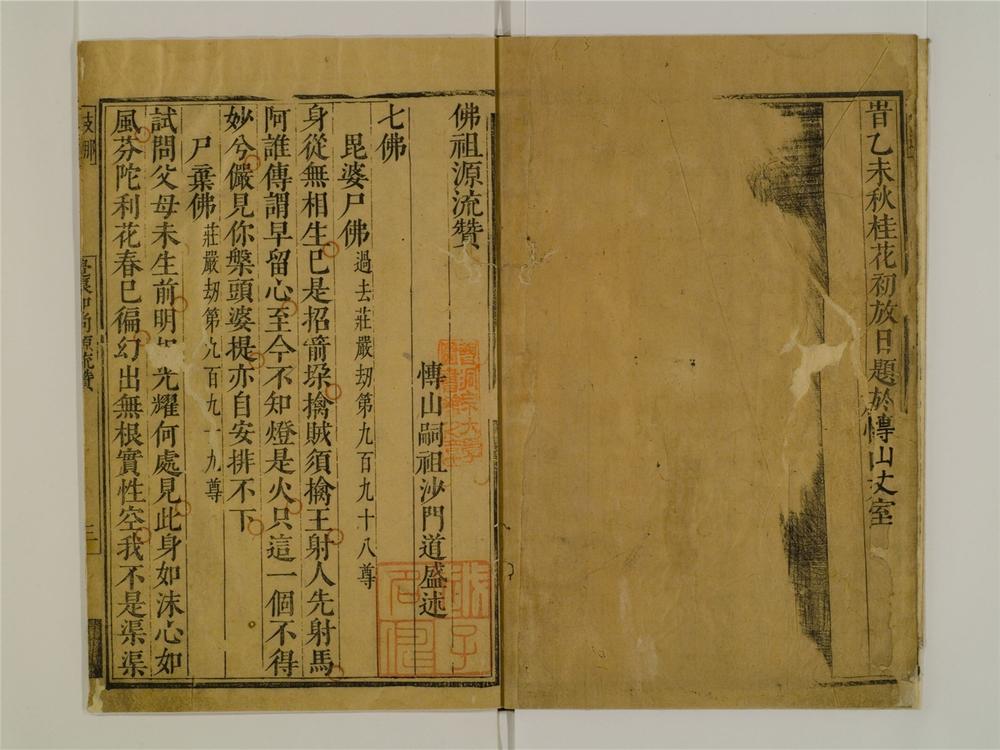 昔乙未秋桂花初放日題於慱山丈室
佛祖源流贊
慱山嗣祖沙門道盛述
七佛
毘婆尸佛過去莊嚴劫第九百九十八尊
身從無相生已是招箭垜擒賊須擒王射人先射馬
阿誰傳謂早留心至今不知燈是火只這一個不得
妙兮儼見你槃頭婆提亦自安排不下
尸棄佛莊嚴劫第九百九十九尊
試問父母未生前明如光耀何處見此身如沫心如
風芬陀利花春已徧幻出無根實性空我不是渠渠
源流贊